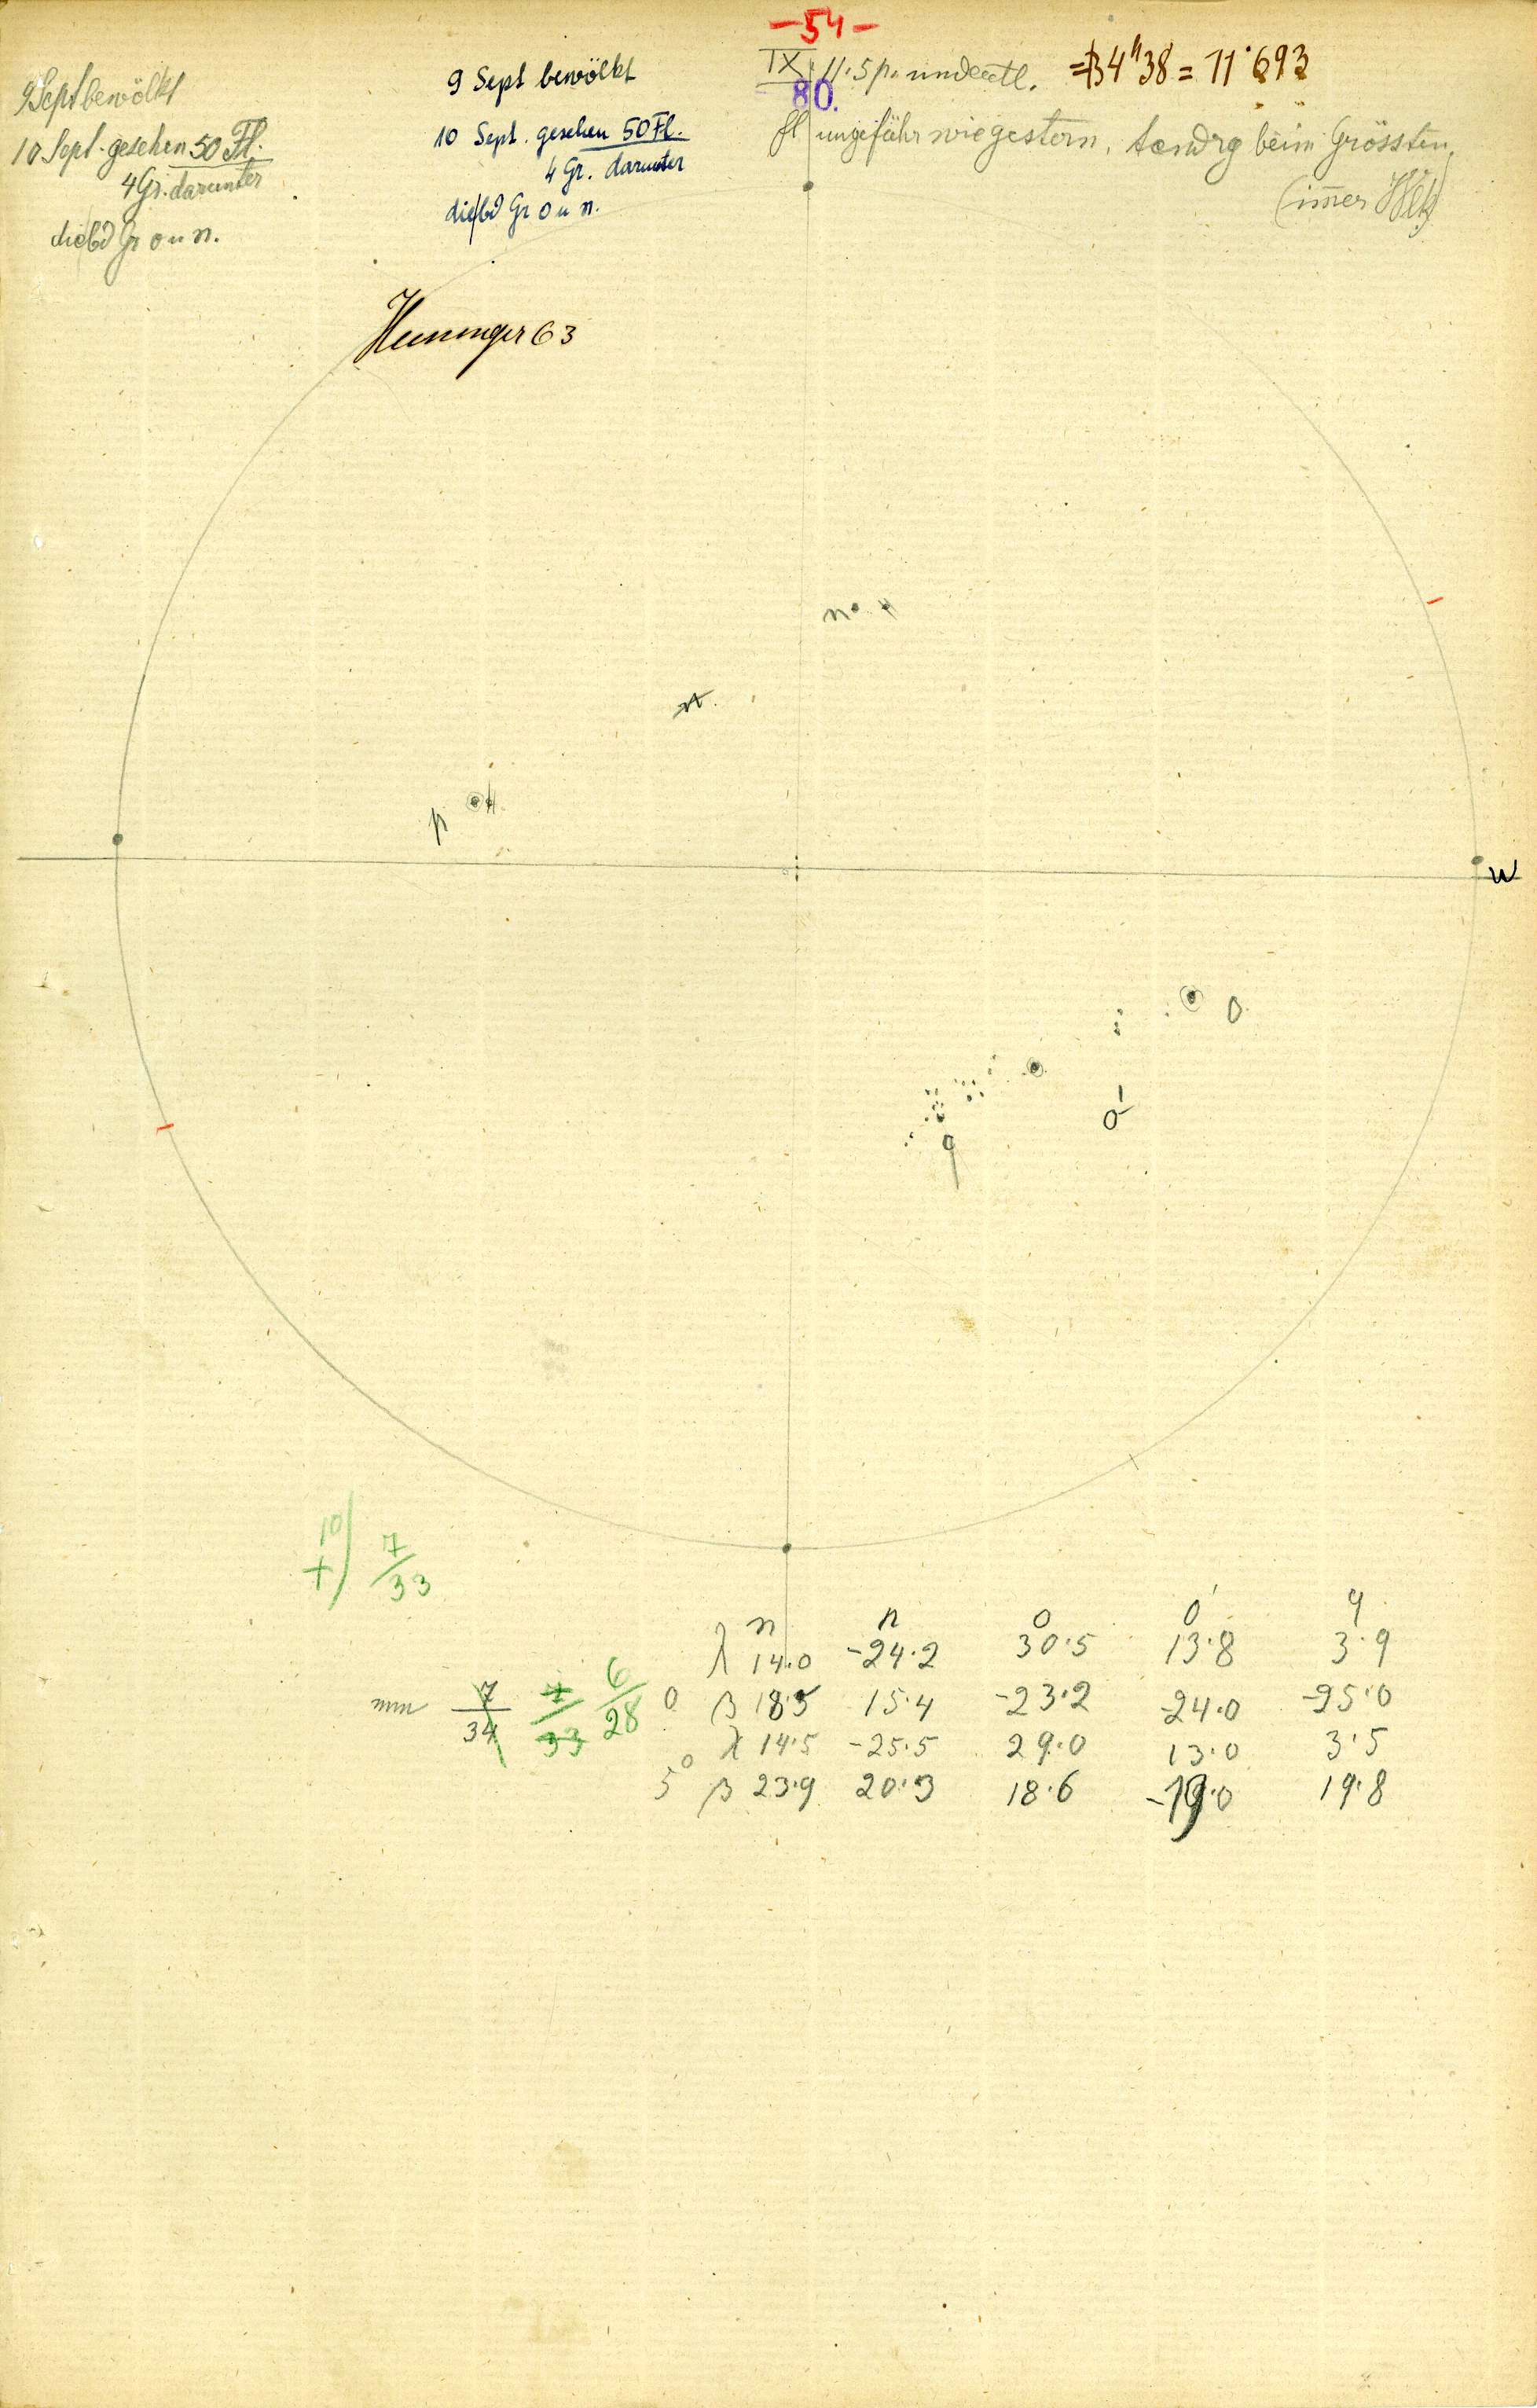 -54-
9 Sept bewölkt
10 Sept. gesehen 50 Fl.
4 Gr. darunter
die bd Gr o u n.
9 Sept bewölkt
10 Sept. gesehen 50 Fl.
4 Gr. darunter
die bd Gr o u n.
IX 11. 5 p. undeutl. = 4h38 = 11.693
80.
fl ungefähr wie gestern. beim Grössten.
(im̄er
63
n
n
W
o
o'
q
10
+) 7/33
n n o o' q
λ 14.0 -24.2 30.5 13.8 3.9
0 β 18.5 15.4 -23.2 -24.0 -25.0
λ 14.5 -25.5 29.0 13.0 3.5
5° β 23.9 20.3 18.6 -19.0 19.8
mm 7/34 7/33 6/28